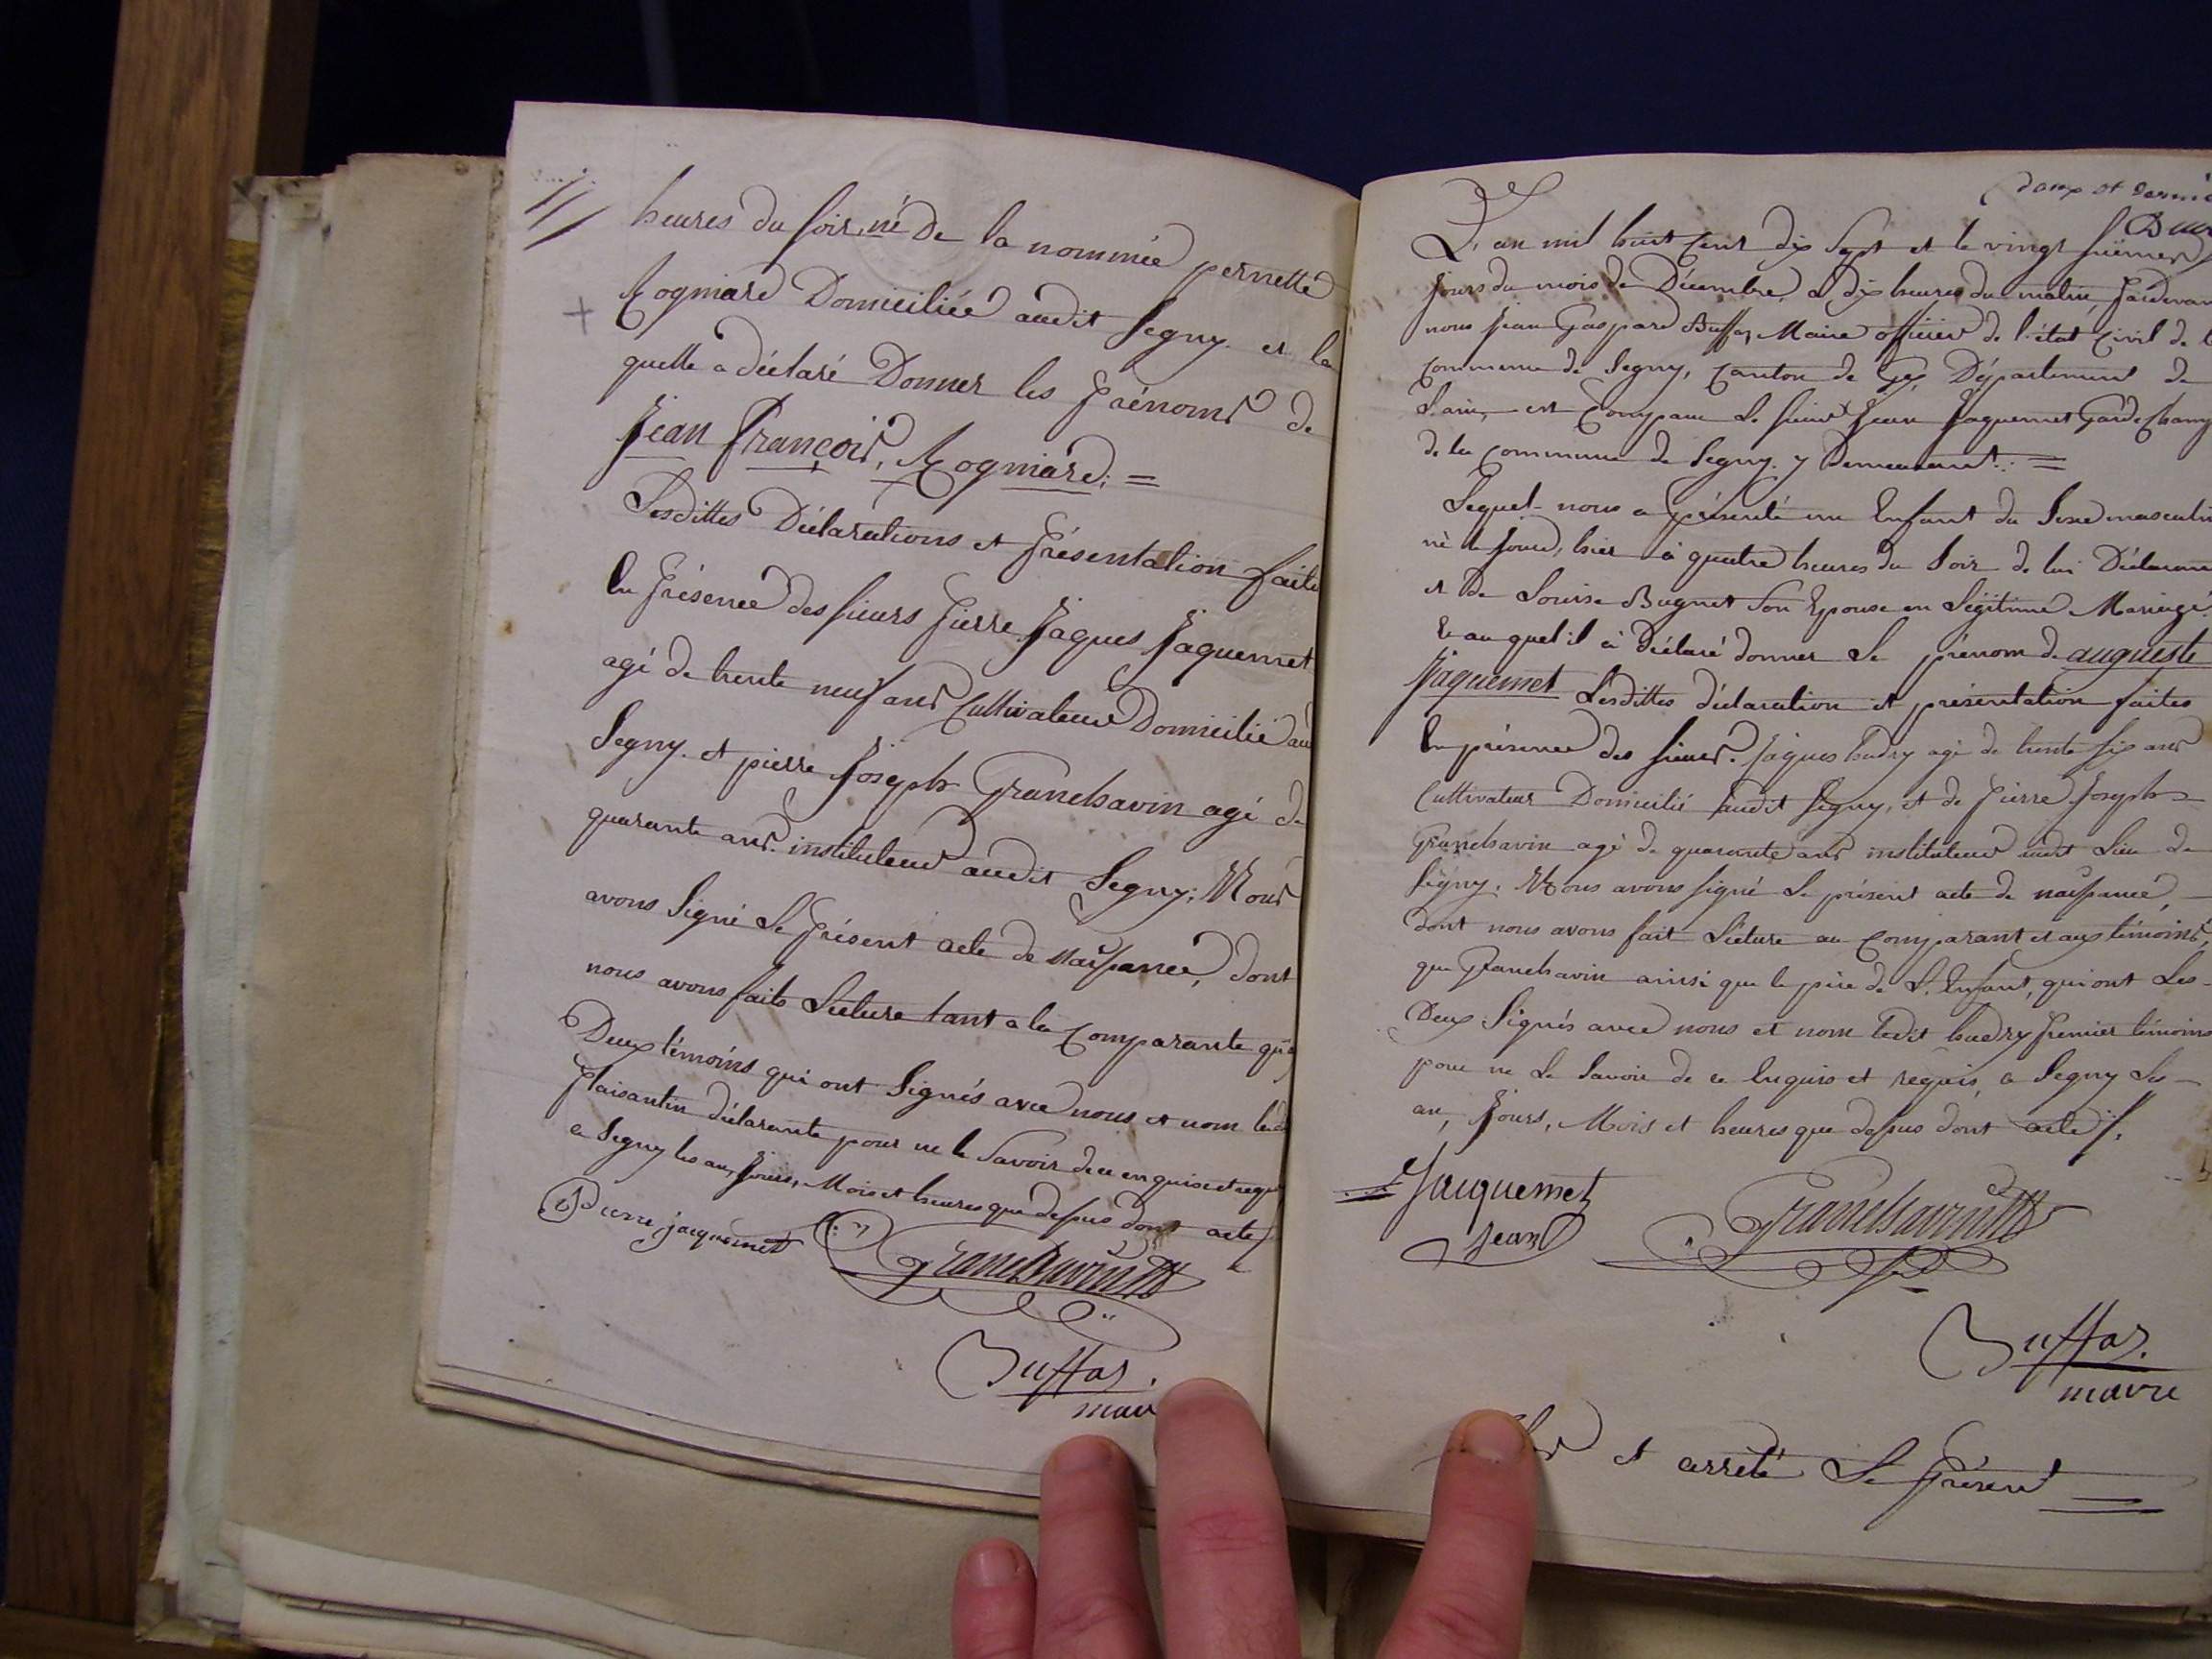 heures du soir, né De la nommée pernette
Rogniard Domiciliée audit Segny. et la
quelle a déclaré Donner les Prénoms de
Jean François, Rogniard; =
Lesdittes Déclarations et Présentation faite
En Présence des sieurs Pierre Jaques Jaquemet
agé de trente neuf ans Cultivateur Domicilié au
Segny. et pierre Joseph Granchavin agé de
quarante ans. instituteur audit Segny; Nous
avons Signé Le Présent acte de Naissance, dont
nous avons faits Lecture tant a la Comparante qu'
Deux témoins qui ont Signés avec nous et nom
Plaisantin déclarante pour ne le Savoir de ce enquise et
a Segny les an, Jours, Mois et heures que dessus dont acte
pierre jacquemet
Granchavin
Buffaz.
mai
doux et derni
L'an mil huit Cent dix Sept et le vingt
Jours du mois de Décembre, a dix heures du matin, Pardevan
nous Jean Gaspard Buffaz, Maire officier de l'état Civil de
Commune de Segny, Canton de Gex, Département de
L'ain, est Comparu Le sieur Jean Jaquemet Garde Champ
de la Commune de Segny. y Demeurant. =
Lequel nous a présenté un Enfant du Sexe masculin
né le jour, hier à quatre heures du Soir de lui Déclaran
et de Louise Bugnet Son Epouse en Légitime Mariage.
Et au quel il à Déclaré donner Le prénom de auguste
Jaquemet Lesdittes déclaration et présentation faites
En présence des sieurs. Jaques hudry agé de trente six ans
Cultivateur Domicilié audit Segny, et de Pierre Joseph
Granchavin agé de quarante ans instituteur audit Lieu de
Segny. Nous avons signé Le présent acte de naissance,
dont nous avons fait Lecture au Comparant et aux témoins,
que Granchavin ainsi que le père de L'Enfant, qui ont Les
Deux Signés avec nous et nom ledit hudry Premier témoins
pour ne Le Savoir de ce Enquis et requis, a Segny Les
an, Jours, Mois et heures que dessus dont acte.
Jaquemet
Jean
Granchavin
Buffaz.
maire
et arrêté Le Présent